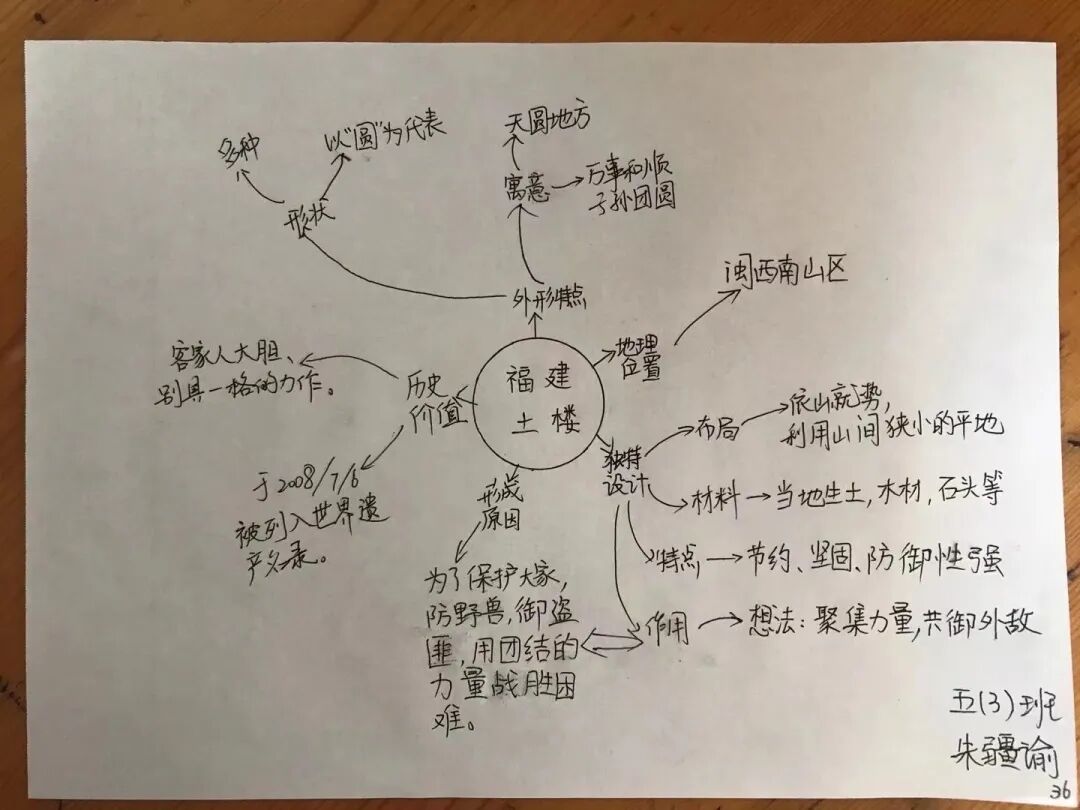 多种
以“圆”为代表
形状
天圆地方
寓意
万事和顺
子孙团圆
外形特点
福建
土楼
地理
位置
闽西南山区
历史
价值
客家人大胆、
别具一格的力作。
于2008/7/6
被列入世界遗
产名录。
形成
原因
为了保护大家,
防野兽,御盗
匪,用团结的
力量战胜困
难。
独特
设计
布局
依山就势,
利用山间狭小的平地
材料
当地生土,木材,石头等
特点
节约、坚固、防御性强
作用
想法:聚集力量,共御外敌
五(3)班
朱疆谕
36